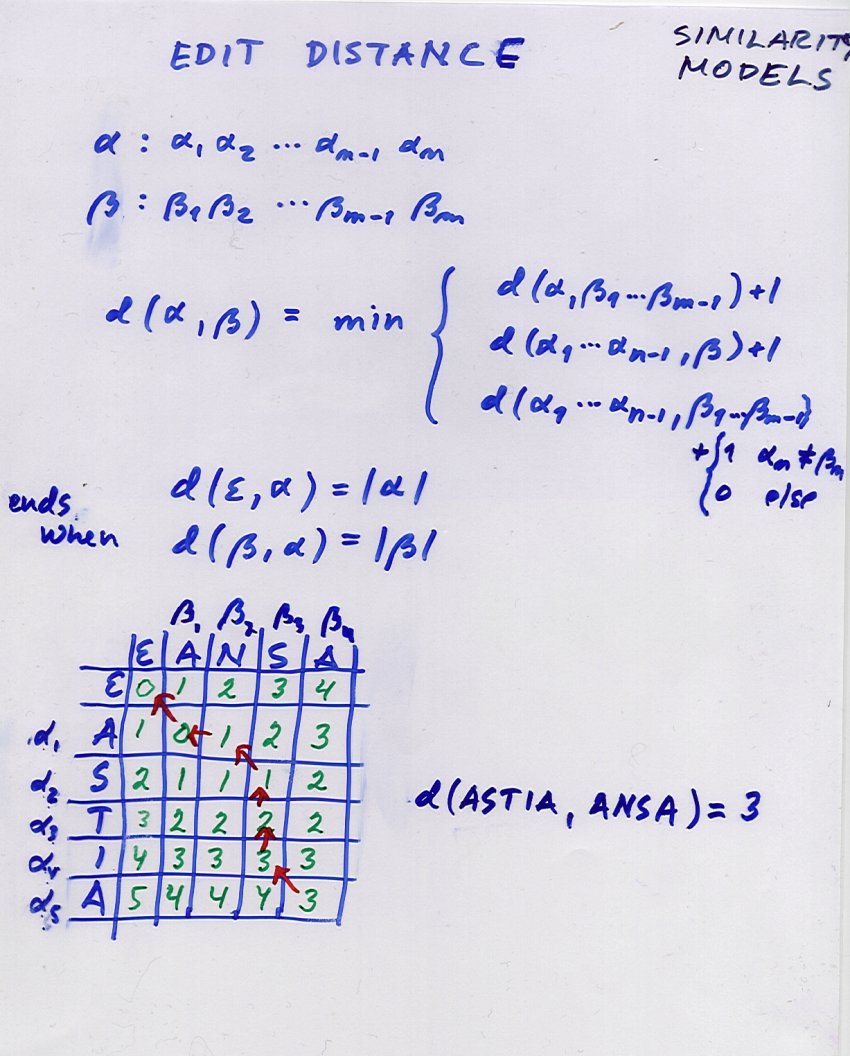 EDIT DISTANCE
SIMILARITY
MODELS
α : α₁ α₂ ... αₙ₋₁ αₙ
β : β₁ β₂ ... βₘ₋₁ βₘ
d(α, β) = min { d(α, β₁...βₘ₋₁) + 1
d(α₁...αₙ₋₁, β) + 1
d(α₁...αₙ₋₁, β₁...βₘ₋₁)
+ { 1 αₙ ≠ βₘ
0 else
ends when
d(ε, α) = |α|
d(β, α) = |β|
β₁ β₂ β₃ β₄
ε A N S A
ε 0 1 2 3 4
α₁ A 1 0 1 2 3
α₂ S 2 1 1 1 2
α₃ T 3 2 2 2 2
α₄ I 4 3 3 3 3
α₅ A 5 4 4 4 3
d(ASTIA, ANSA) = 3